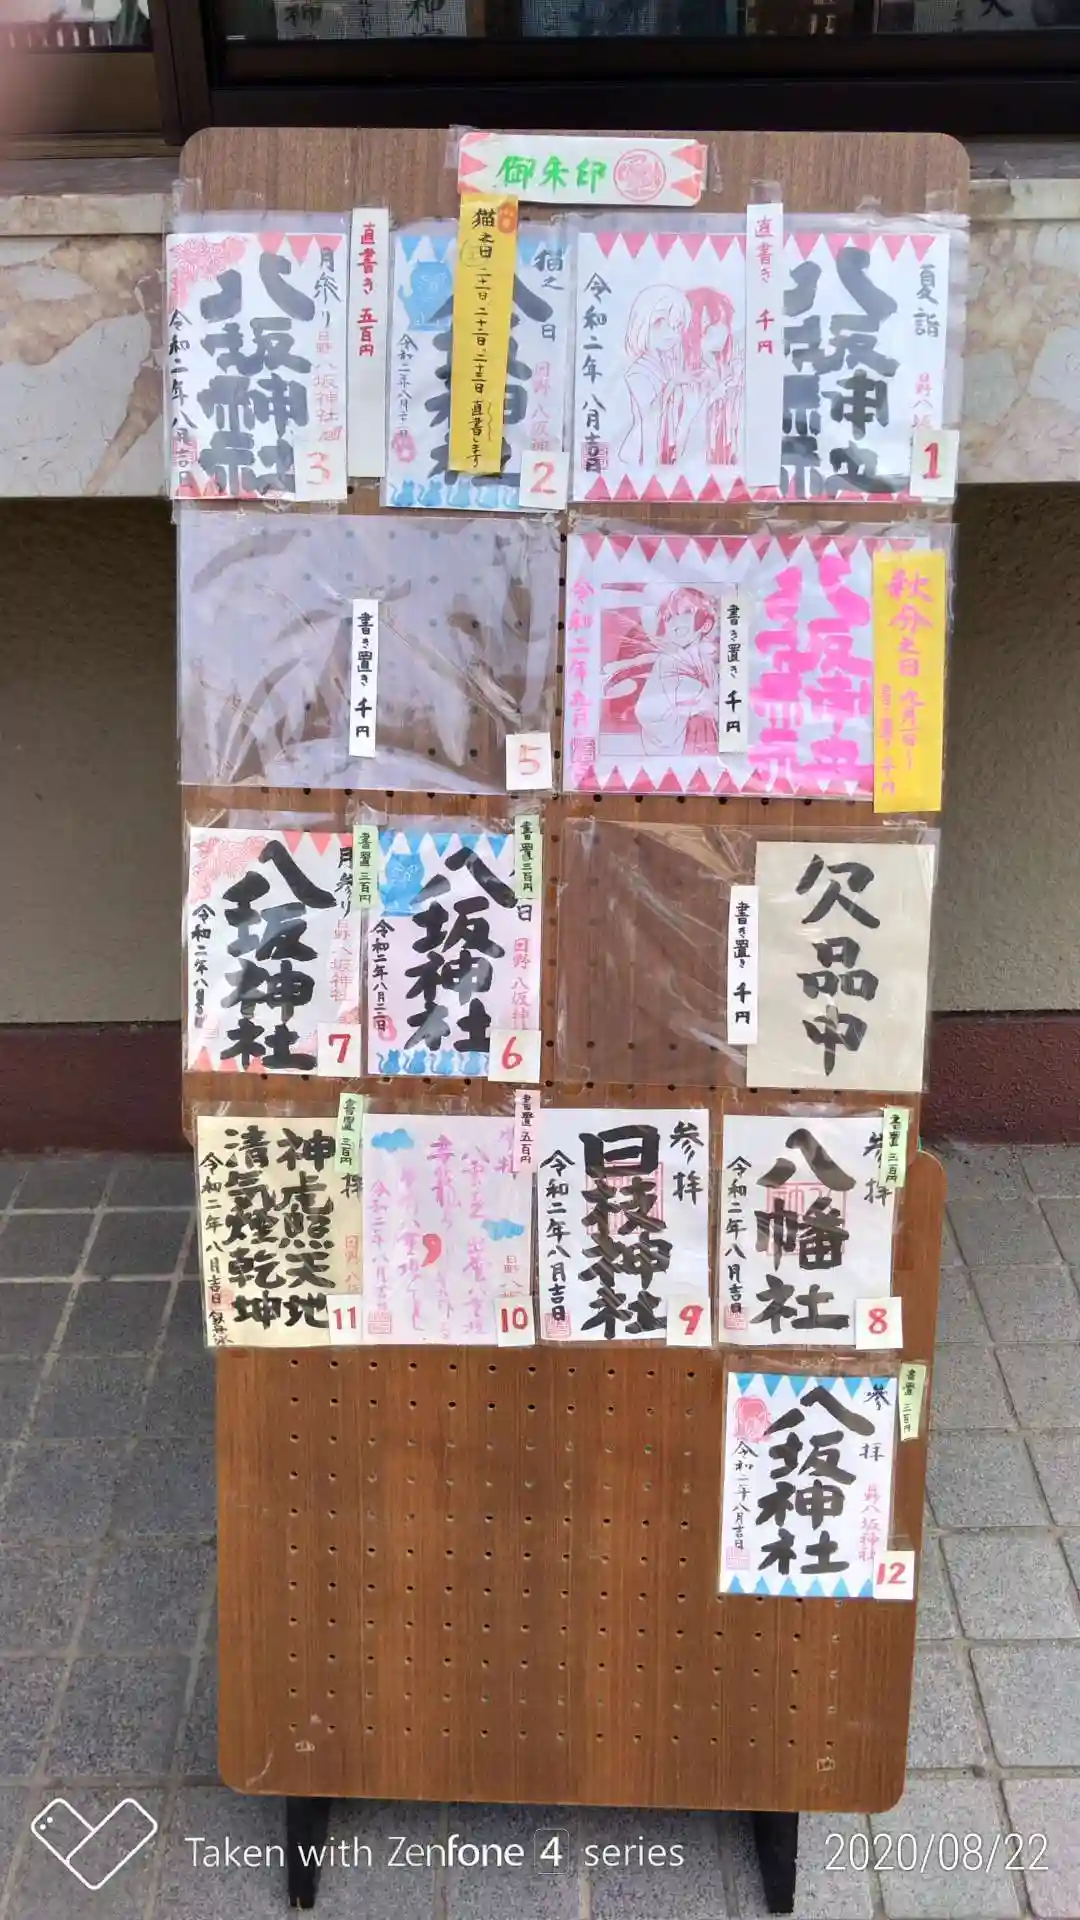 御朱印
夏詣
八坂神社
令和二年 八月吉日
直書き 千円
1
猫之日
令和二年八月二十二日
猫之日 二十一日、二十二日、二十三日 直書きます
2
直書き 五百円
月参り
日野 八坂神社
八坂神社
令和二年 八月吉日
3
秋分之日 九月一日〜
八坂神社
書き置き 千円
令和二年 九月
書き置き 千円
5
欠品中
書き置き 千円
書置 三百円
日
日野 八坂神
八坂神社
令和二年八月二十二日
6
書置 三百円
月参り
日野 八坂神社
八坂神社
令和二年八月吉日
7
書置 三百円
参拝
八幡社
令和二年八月吉日
8
参拝
日枝神社
令和二年八月吉日
9
書置 五百円
令和二年八月吉日
10
書置 三百円
拝
神虎照天地
清気煙乾坤
令和二年八月吉日
11
書置 三百円
参拝
日野八坂神社
八坂神社
令和二年八月吉日
12
Taken with Zenfone 4 series
2020/08/22